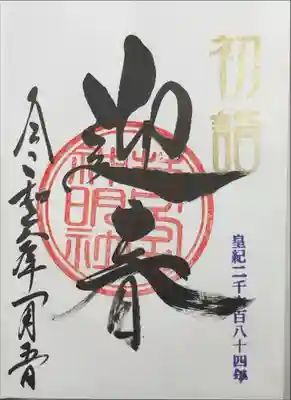 初詣
皇紀二千六百八十四年
迎春
令和六年一月五日